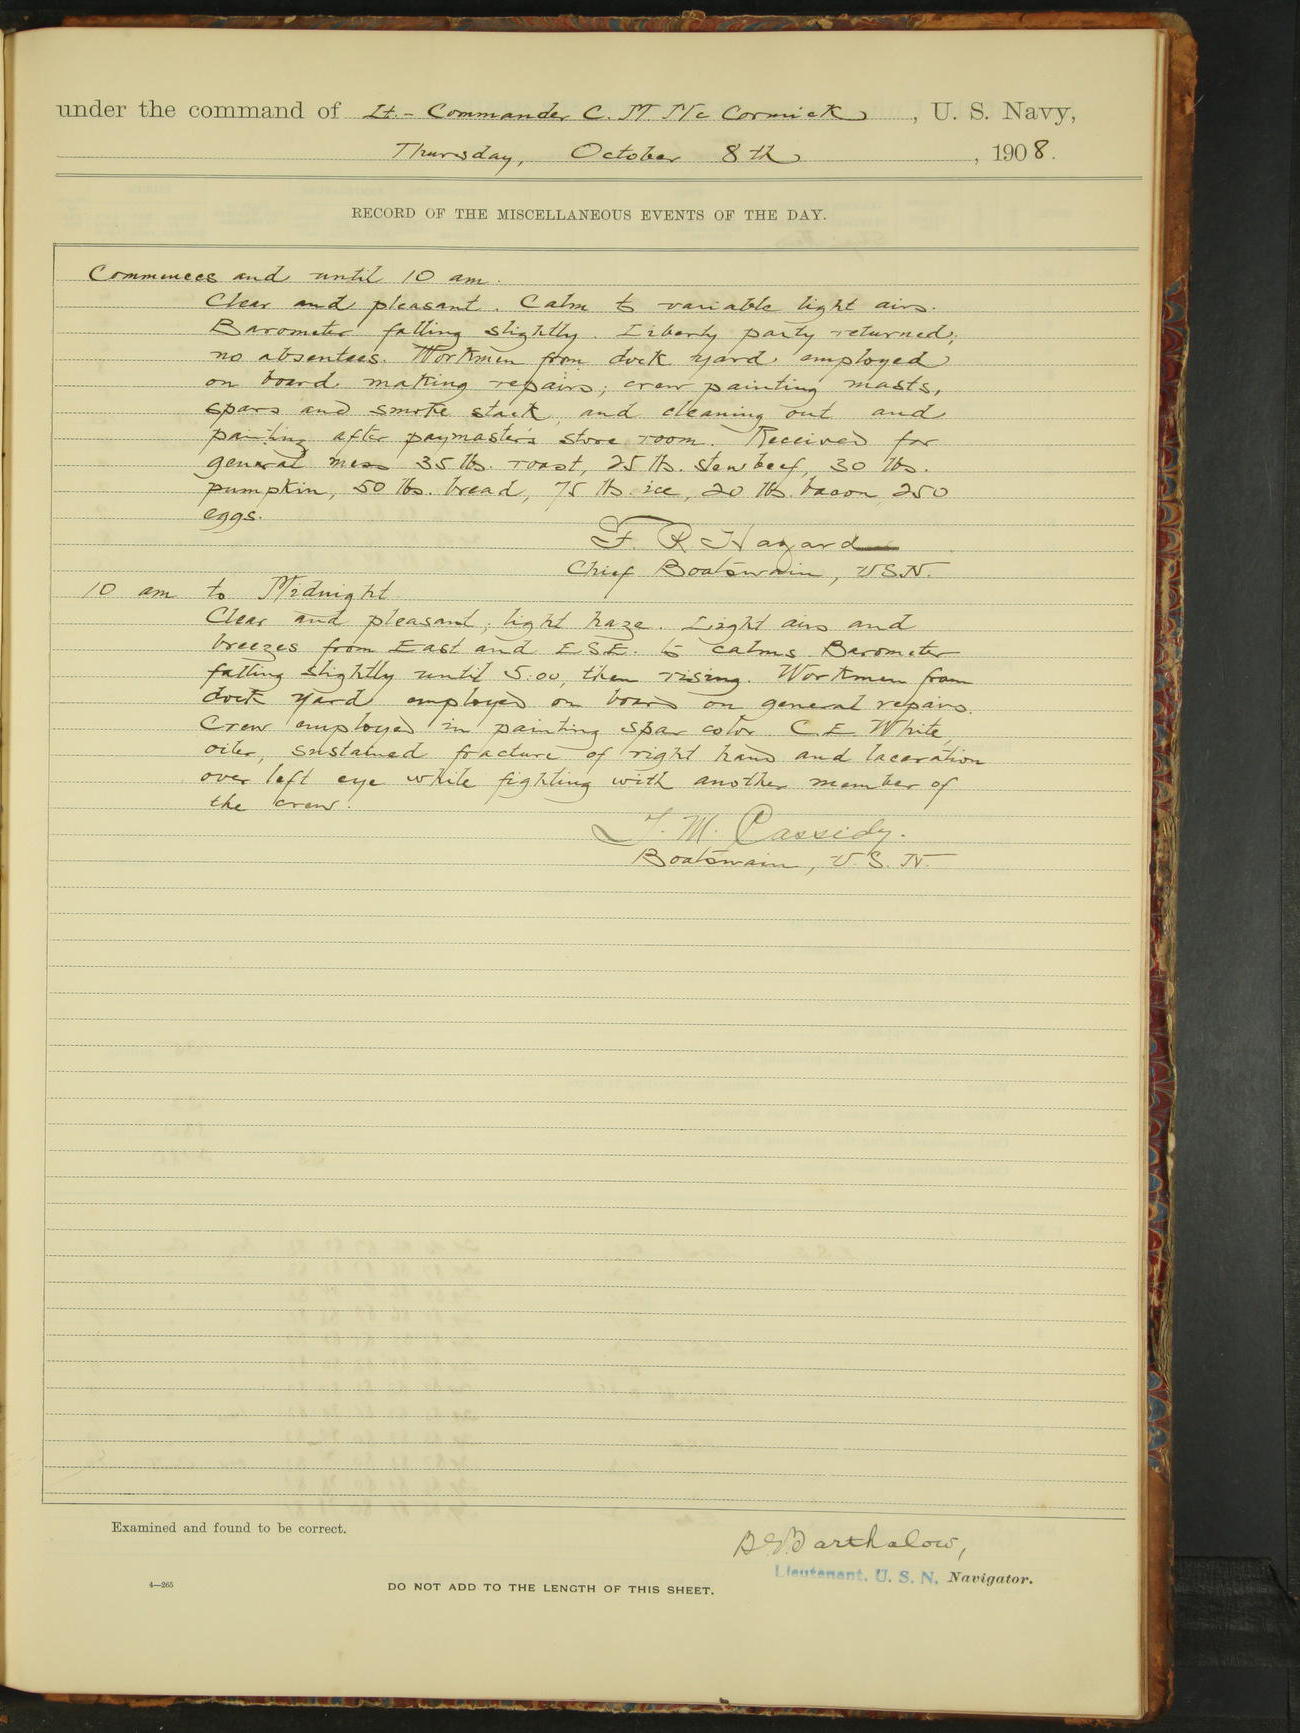 under the command of Lt.- Commander C. M. Mc Cormick, U. S. Navy,
Thursday, October 8th, 1908.
RECORD OF THE MISCELLANEOUS EVENTS OF THE DAY.
Commences and until 10 am.
Clear and pleasant. Calm to variable light airs.
Barometer falling slightly. Liberty party returned;
no absentees. Workmen from dock yard employed
on board making repairs; crew painting masts,
spars and smoke stack, and cleaning out and
painting after paymaster's store room. Received for
general mess 35 lbs. roast, 25 lb. stew beef, 30 lbs.
pumpkin, 50 lbs. bread, 75 lb. ice, 20 lb. bacon, 250
eggs.
F. R. Hazard
Chief Boatswain, USN.
10 am to Midnight
Clear and pleasant; light haze. Light airs and
breezes from East and ESE. to calms Barometer
falling slightly until 5.00, then rising. Workmen from
dock yard employed on board on general repairs.
Crew employed in painting spar color. C E White,
oiler, sustained fracture of right hand and laceration
over left eye while fighting with another member of
the crew.
J. M. Cassidy.
Boatswain, U. S. N.
Examined and found to be correct.
Barthalow,
Lieutenant, U. S. N. Navigator.
4—265
DO NOT ADD TO THE LENGTH OF THIS SHEET.